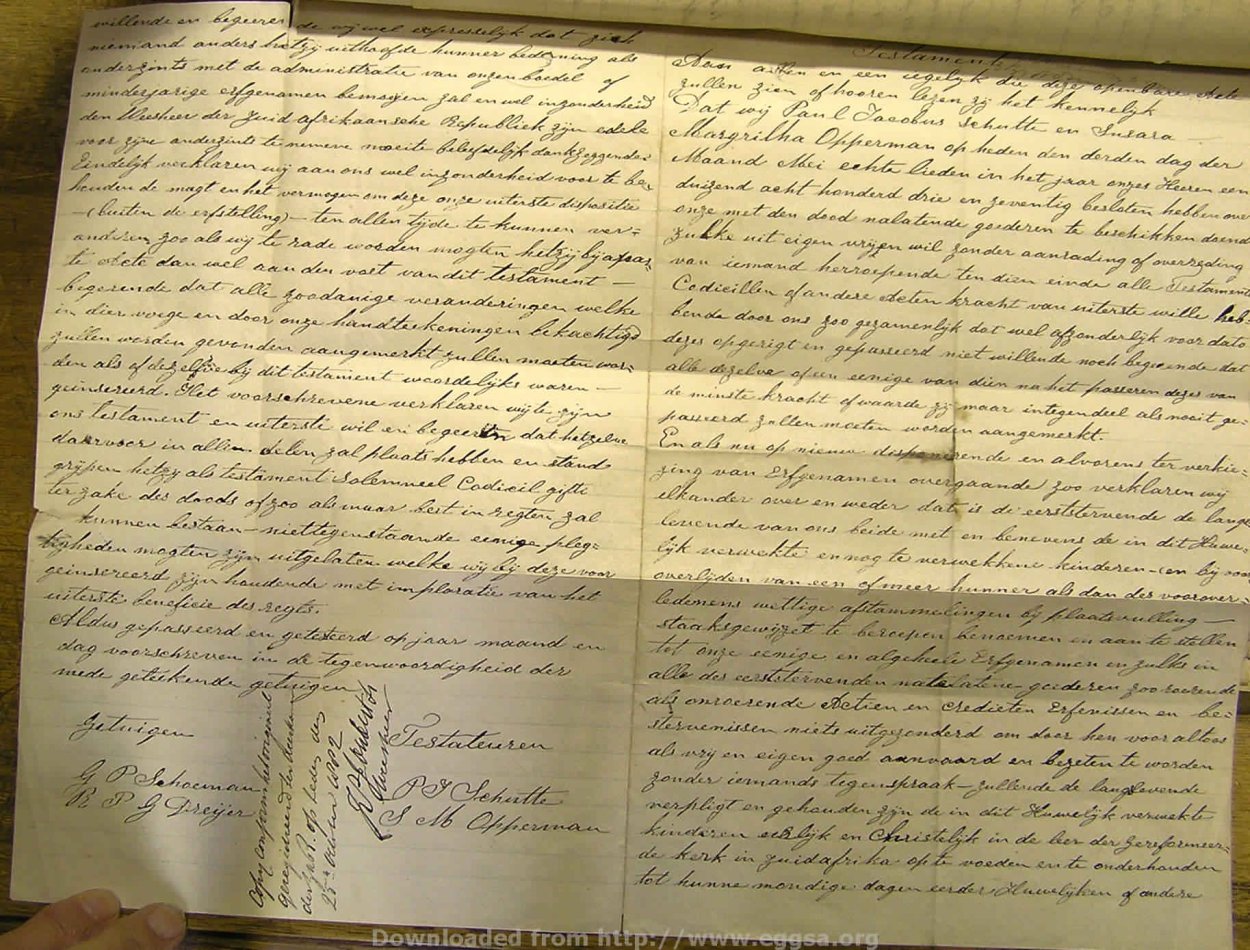 willende en begeerende wij wel expresselijk dat zich
niemand anders hetzij uithoofde hunner bediening als
anderzints met de administratie van onzen boedel of
minderjarige erfgenamen bemoeijen zal en wel inzonderheid
den Weesheer der Zuid afrikaansche Republiek zijn edele
voor zijne anderzints te nemene moeite beleefdelijk dankzeggende.
Eindelijk verklaren wij aan ons wel inzonderheid voor te be-
houden de magt en het vermogen om deze onze uiterste dispositie
—(buiten de erfstelling)— ten allen tijde te kunnen ver=
anderen zoo als wij te rade worden mogten hetzij bij aparc-
te Acte dan wel aan den voet van dit testament —
begeerende dat alle zoodanige veranderingen welke
in dier voege en door onze handteekeningen bekrachtigd
zullen worden gevonden aangemerkt zullen moeten wor-
den als of dezelfde bij dit testament woordelijks waren —
geinsereerd. Het voorschrevene verklaren wij te zijn
ons testament en uiterste wil en begeerten dat hetzelve
daarvoor in allen delen zal plaats hebben en stand
grijpen hetzij als testament Solemneel Codicil gifte
ter zake des doods of zoo als maar best in regten zal
kunnen bestaan — niettegenstaande eenige pleg=
tigheden mogten zijn uitgelaten welke wij bij deze voor
geinsereerd zijn houdende met imploratie van het
uiterste beneficie des regts.
Aldus gepasseerd en getesteerd op jaar maand en
dag voorschreven in de tegenwoordigheid der
mede geteekende getuigen
Getuigen
G P Schoeman
R P G Dreijer
Copij conform het origineele
geregistreerd ten kantore
op heden den
1882
Testateuren
P J Schutte
S M Opperman
Testament
Aan allen en een iegelijk die deze openbare Acte
zullen zien of hooren lezen zij het kennelijk
Dat wij Paul Jacobus Schutte en Susara
Margritha Opperman op heden den derden dag der
Maand Mei echte lieden in het jaar onzes Heeren een
duizend acht honderd drie en zeventig besloten hebben over
onze met den dood nalatende goederen te beschikken doende
zulke uit eigen vrijen wil zonder aanrading of overreding
van iemand herroepende ten dien einde alle Testament
Codicillen of andere Acten kracht van uiterste wille heb-
bende door ons zoo gezamenlijk dat wel afzonderlijk voor dato
dezes opgerigt en gepasseerd niet willende noch begeerende dat
alle dezelve of een eenige van dien na het passeren dezes van
de minste kracht of waarde zij maar integendeel als nooit ge-
passeerd zullen moeten worden aangemerkt.
En als nu op nieuw disponerende en alvorens ter verkie-
zing van Erfgenamen overgaande zoo verklaren wij
elkander over en weder dat is de eerststervende de langst
levende van ons beide met en benevens de in dit Huwe-
lijk verwekte en nog te verwekkene kinderen – en bij voor
overlijden van een of meer hunner als dan des voorover-
ledenens wettige afstammelingen bij plaatsvulling —
staaksgewijzet te beroepen benoemen en aan te stellen
tot onze eenige en algeheele Erfgenamen en zulks in
alle des eerststervenden natelatene goederen zoo roerende
als onroerende Actien en Credieten Erfenissen en be-
stervenissen niets uitgezonderd om door hen voor altoos
als vrij en eigen goed aanvaard en bezeten te worden
zonder iemands tegenspraak – zullende de langlevende
verpligt en gehouden zijn de in dit Huwelijk verwekte
kinderen eerlijk en Christelijk in de leer der gereformeer-
de kerk in Zuidafrika op te voeden en te onderhouden
tot hunne mondige dagen eerder Huwelijken of andere
Downloaded from http://www.eggsa.org